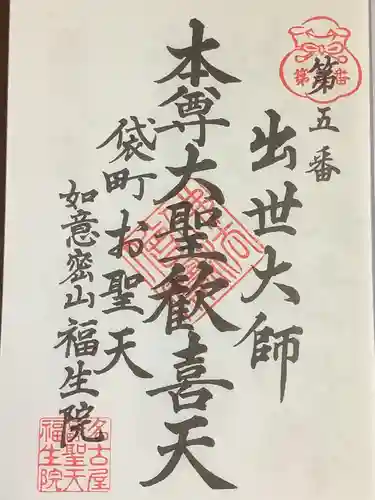 第五番
出世大師
本尊大聖歓喜天
袋町お聖天
如意密山福生院
第 番
名古屋
聖天
福生院